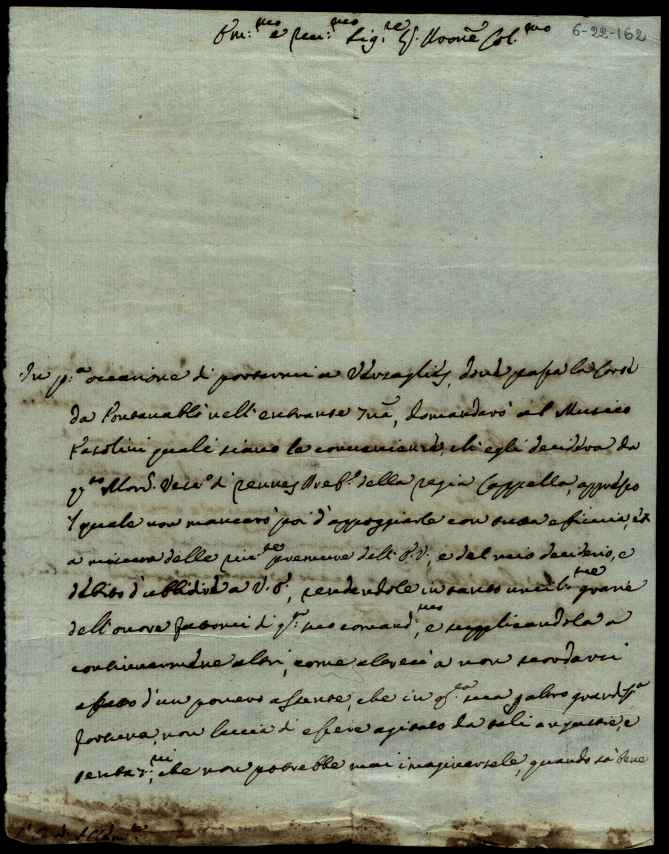 Em.mo e Rev.mo Sig.re Sig. Prone Col.mo
6-22-162
In p.a occasione di portarmi a Versaglies, dove passa la Corte
da Fontanablò nell'entrante 7na, domandarò al Musico
Pasolini quali siano le convenienze, ch'egli desidera da
q.to Mons. Vesc.o di Rennes Pref.o della regia Cappella, appresso
il quale non mancarò poi d'appoggiarle con tutta efficacia,
a misura delle riv.te premure dell'E.V., e del mio desiderio, e
debito d'ubbidire a V.E., rendendole intanto umil.me grazie
dell'onore favorirmi di q.ti suoi comandi, e supplicandola a
continuarmene altri, come altresì a non scordarsi
affatto d'un povero assente, che in q.ta sua p altro grandiss.a
fortuna, non lascia di essere agitato da tali angustie, e
che non potrebbe mai imaginarsele, quando sà bene